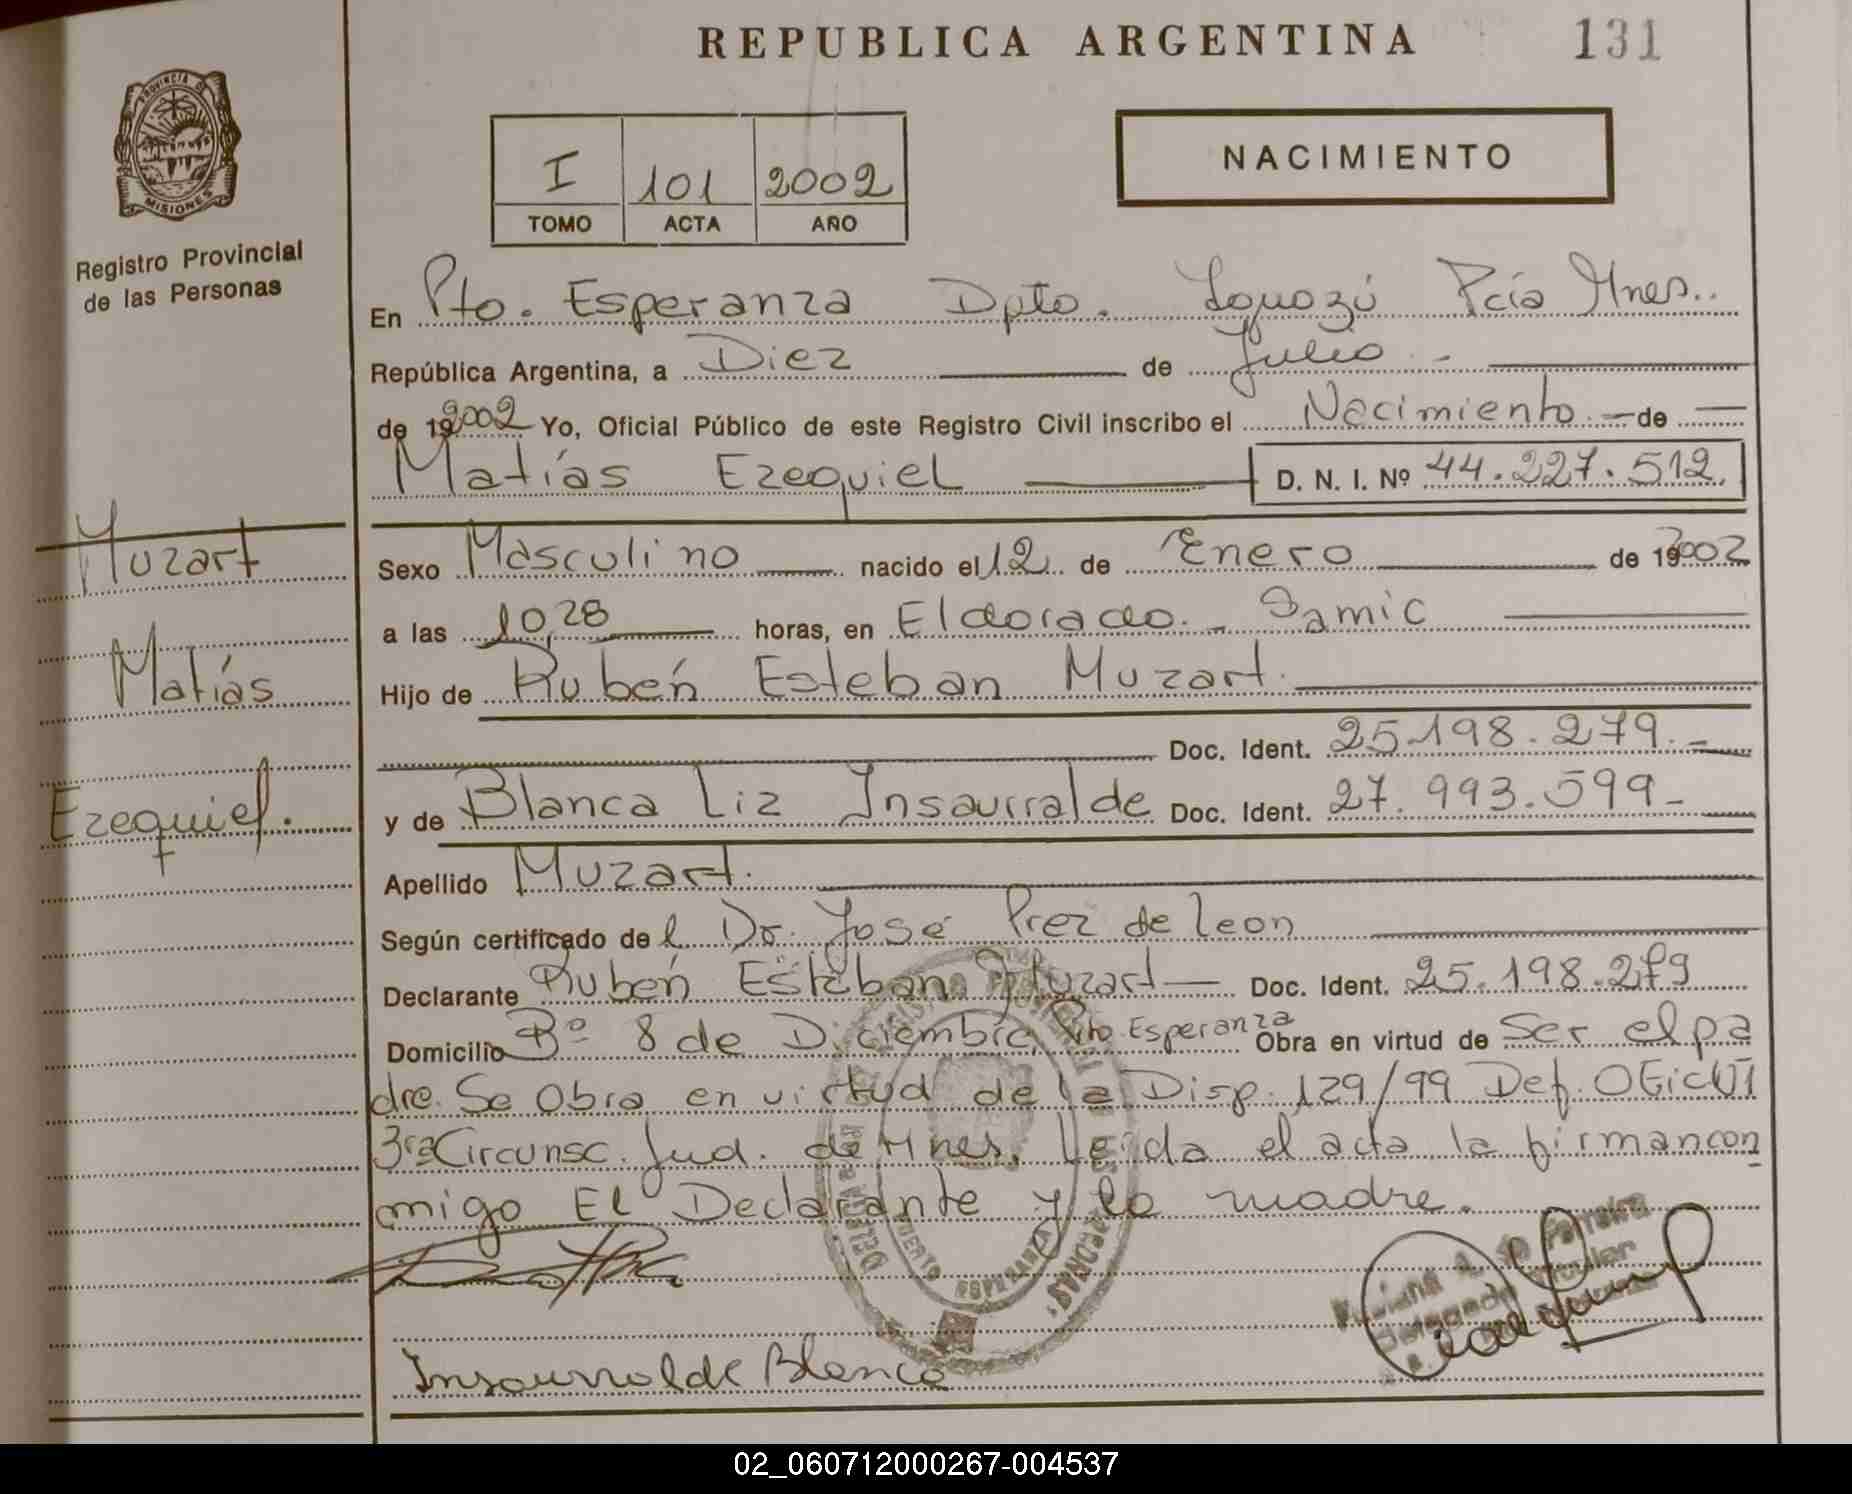 REPUBLICA ARGENTINA
131
PROVINCIA DE
MISIONES
Registro Provincial
de las Personas
I 101 2002
TOMO ACTA AÑO
NACIMIENTO
En Pto. Esperanza Dpto. Iguazú Pcia Mnes..
República Argentina, a Diez de Julio. -
de 192002 Yo, Oficial Público de este Registro Civil inscribo el Nacimiento. - de
Matías Ezequiel D. N. I. Nº 44.227.512.
Muzart
Matías
Ezequiel.
Sexo Masculino nacido el 12 de Enero de 192002
a las 10,28 horas, en Eldorado. - Samic
Hijo de Rubén Esteban Muzart.
Doc. Ident. 25.198.279. -
y de Blanca Liz Insaurralde Doc. Ident. 27.993.599-
Apellido Muzart.
Según certificado del Dr. José Prez de Leon
Declarante Rubén Esteban Muzart Doc. Ident. 25.198.279
Domicilio Bº 8 de Diciembre Pto Esperanza Obra en virtud de Ser el pa
dre. Se Obra en virtud de la Disp. 129/99 Def. Oficial
3ra Circunsc. Jud. de Mnes. Leida el acta la firman con
migo El Declarante y la madre.
PUERTO ESPERANZA
Insaurralde Blanca
02_060712000267-004537